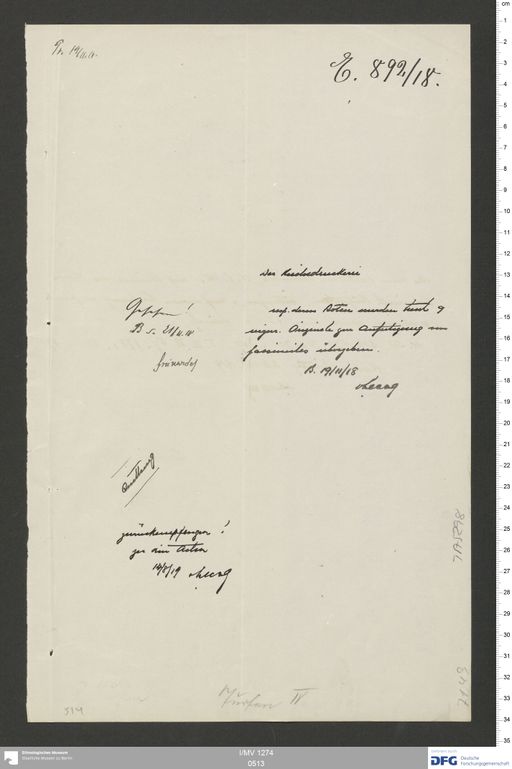 Pr. 19/11.18.
E. 892/18.
Der Reichsdruckerei
resp. deren Boten wurden
Originale zur Anfertigung von
Facsimiles übergeben.
B. 19/11/18
Gesehen!
B. d. 21/11.18
Quittung
zurückempfangen!
zu den Acten
14/8/19
Turfan IV
514
Ethnologisches Museum
Staatliche Museen zu Berlin
I/MV 1274
0513
gefördert durch
DFG Deutsche
Forschungsgemeinschaft
cm
1
2
3
4
5
6
7
8
9
10
11
12
13
14
15
16
17
18
19
20
21
22
23
24
25
26
27
28
29
30
31
32
33
34
35